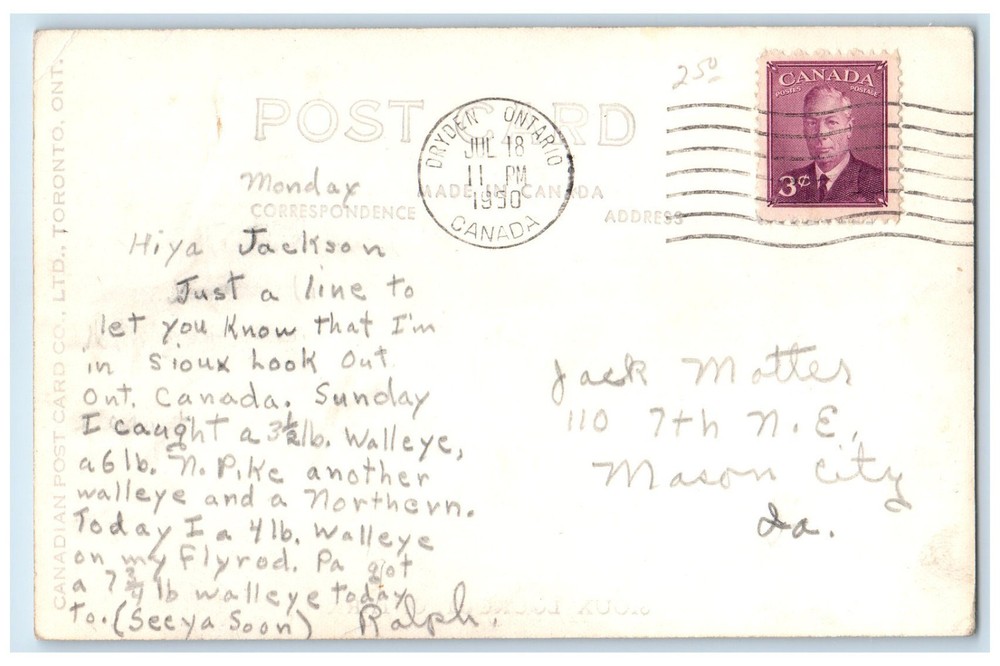 2 50
CANADA
POSTES POSTAGE
3¢
POST CARD
DRYDEN ONTARIO
JUL 18
11 PM
1950
CANADA
MADE IN CANADA
CORRESPONDENCE
ADDRESS
CANADIAN POST CARD CO., LTD., TORONTO, ONT.
Monday
Hiya Jackson
Just a line to
let you Know that I'm
in Sioux Look Out
Ont. Canada. Sunday
I caught a 3½ lb. Walleye,
a 6 lb. N. Pike another
walleye and a Northern.
Today I a 4 lb. Walleye
on my Flyrod. Pa got
a 7¾ lb walleye today
to. (See ya Soon) Ralph.
Jack Motter
110 7th N.E,
Mason City
Ia.